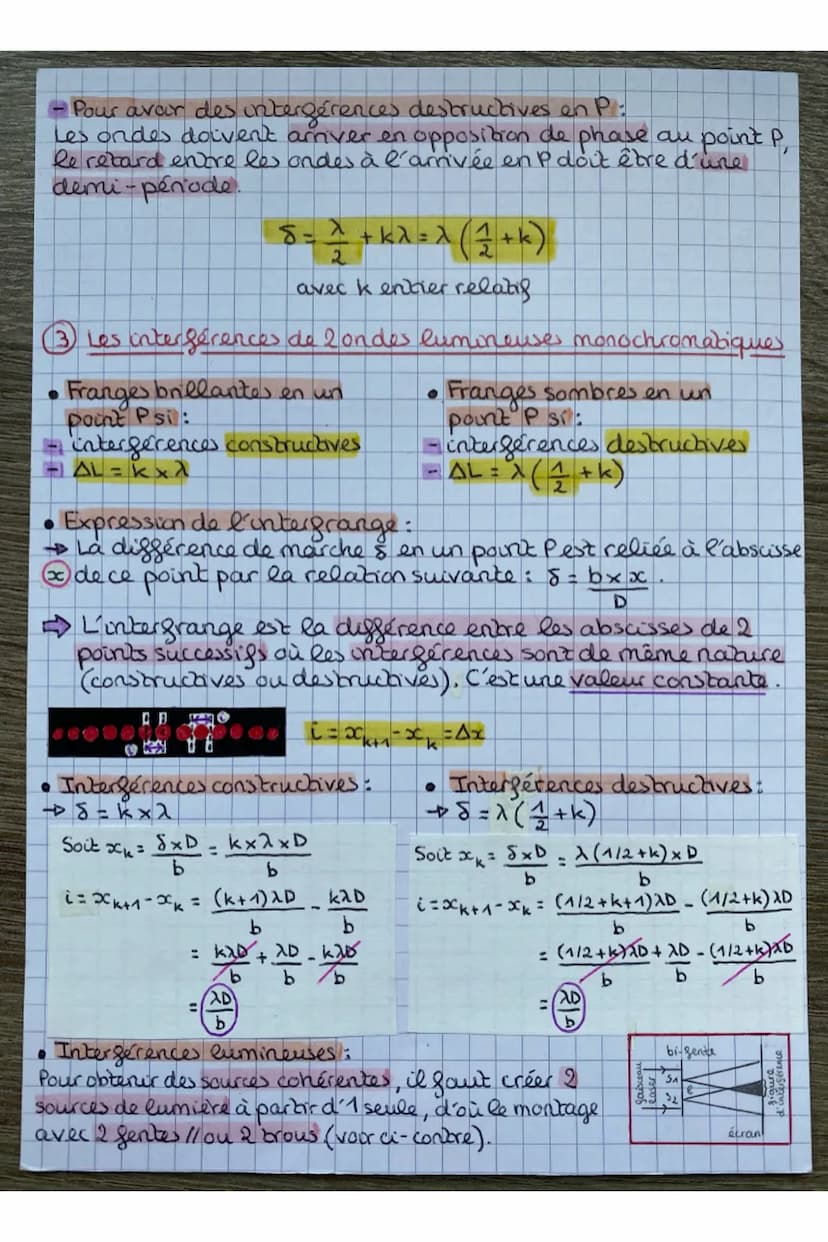 - Pour avoir des interférences destructives en P :
Les ondes doivent arriver en opposition de phase au point P,
le retard entre les ondes à l'arrivée en P doit être d'une
demi-période.
δ = λ/2 + kλ = λ(1/2 + k)
avec k entier relatif
③ Les interférences de 2 ondes lumineuses monochromatiques
• Franges brillantes en un
point P si :
- interférences constructives
- ΔL = k × λ
• Franges sombres en un
point P si :
- interférences destructives
- ΔL = λ(1/2 + k)
• Expression de l'interfrange :
→ La différence de marche δ en un point P est reliée à l'abscisse
x de ce point par la relation suivante : δ = b × x / D.
⇒ L'interfrange est la différence entre les abscisses de 2
points successifs où les interférences sont de même nature
(constructives ou destructives). C'est une valeur constante.
i
i
i = xk+1 - xk = Δx
• Interférences constructives :
→ δ = k × λ
Soit xk = δ×D/b = k×λ×D/b
i = xk+1 - xk = (k+1)λD/b - kλD/b
= kλD/b + λD/b - kλD/b
= λD/b
• Interférences destructives :
→ δ = λ(1/2 + k)
Soit xk = δ×D/b = λ(1/2+k)×D/b
i = xk+1 - xk = (1/2+k+1)λD/b - (1/2+k)λD/b
= (1/2+k)λD/b + λD/b - (1/2+k)λD/b
= λD/b
• Interférences lumineuses :
Pour obtenir des sources cohérentes, il faut créer 2
sources de lumière à partir d'1 seule, d'où le montage
avec 2 fentes // ou 2 trous (voir ci-contre).
bi-fente
faisceau
laser
S1
S2
écran
figure
d'interférence